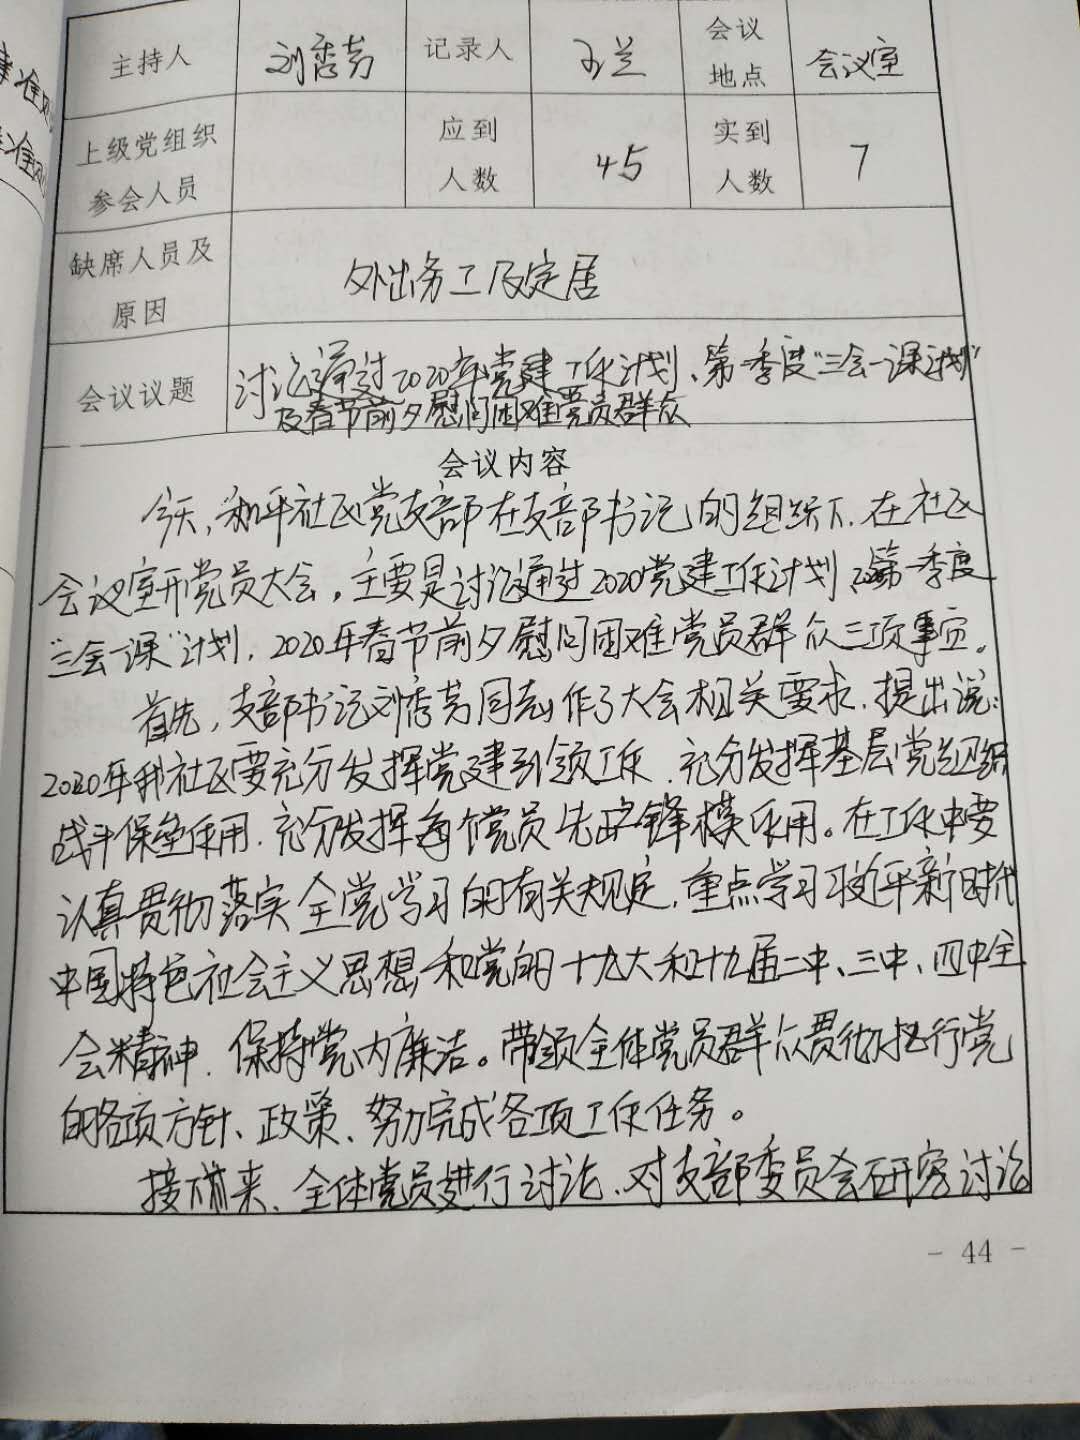 主持人 刘秀芳 记录人 王兰 会议地点 会议室
上级党组织参会人员 应到人数 45 实到人数 7
缺席人员及原因 外出务工及定居
会议议题 讨论通过2020年党建工作计划、第一季度"三会一课计划"
及春节前夕慰问困难党员群众
会议内容
今天,和平社区党支部在支部书记的组织下,在社区
会议室开党员大会,主要是讨论通过2020党建工作计划,第一季度
"三会一课"计划,2020年春节前夕慰问困难党员群众三项事宜。
首先,支部书记刘秀芳同志作了大会相关要求,提出说:
2020年我社区要充分发挥党建引领工作,充分发挥基层党组织
战斗保垒作用,充分发挥每个党员先锋模作用。在工作中要
认真贯彻落实全党学习的有关规定,重点学习习近平新时代
中国特色社会主义思想和党的十九大和十九届二中、三中、四中全
会精神,保持党内廉洁。带领全体党员群众贯彻执行党
的各项方针、政策、努力完成各项工作任务。
接下来、全体党员进行讨论,对支部委员会研究讨论
- 44 -